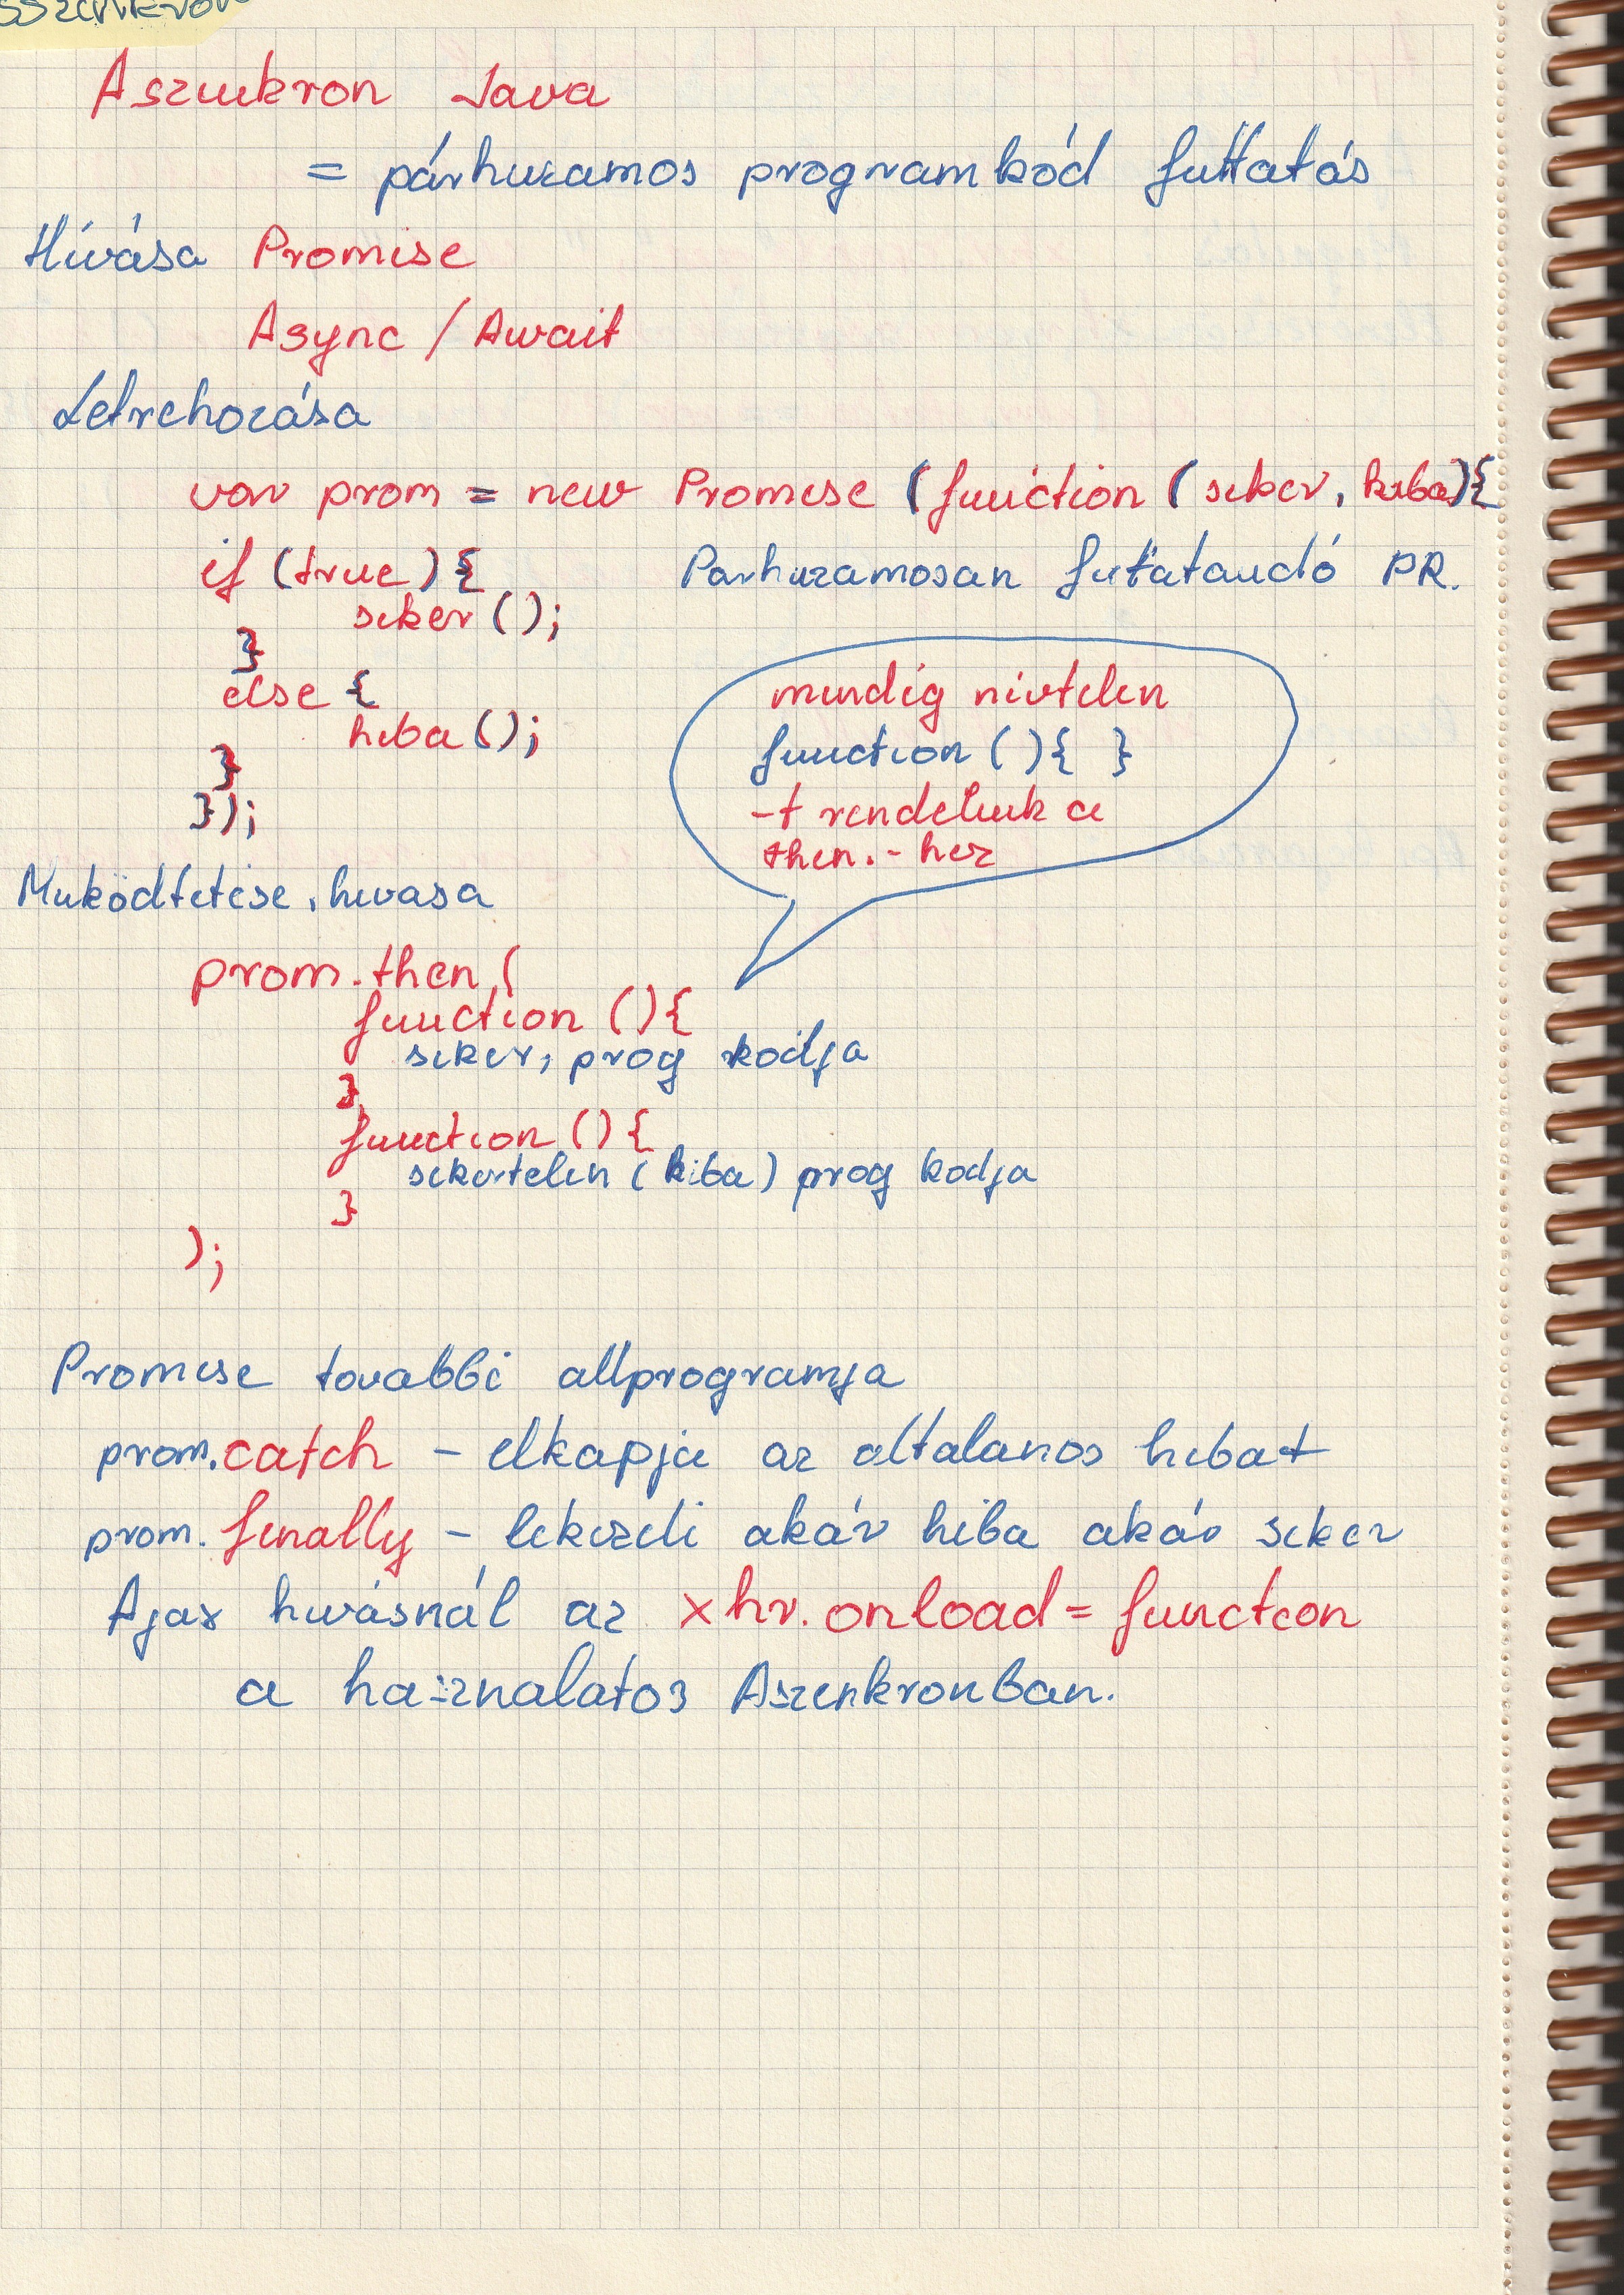 Aszinkron Java
= párhuzamos programkód futtatás
Hívása Promise
Async / Await
Letrehozása
var prom = new Promise (function (siker, hiba){
if (true) {
Parhuzamosan futtatandó PR.
siker ();
}
else {
hiba ();
}
});
mindig nívtelen
function () { }
-t rendelünk a
then. - hez
Muködtetése, hivasa
prom.then (
function () {
siker, prog kodja
},
function () {
sikertelen (hiba) prog kodja
}
);
Promise tovabbi allprogramja
prom.catch - elkapja az altalanos hibat
prom. finally - lekezeli akár hiba akár siker
Ajax hivásnál az xhr.onload = function
a használatos Aszinkronban.